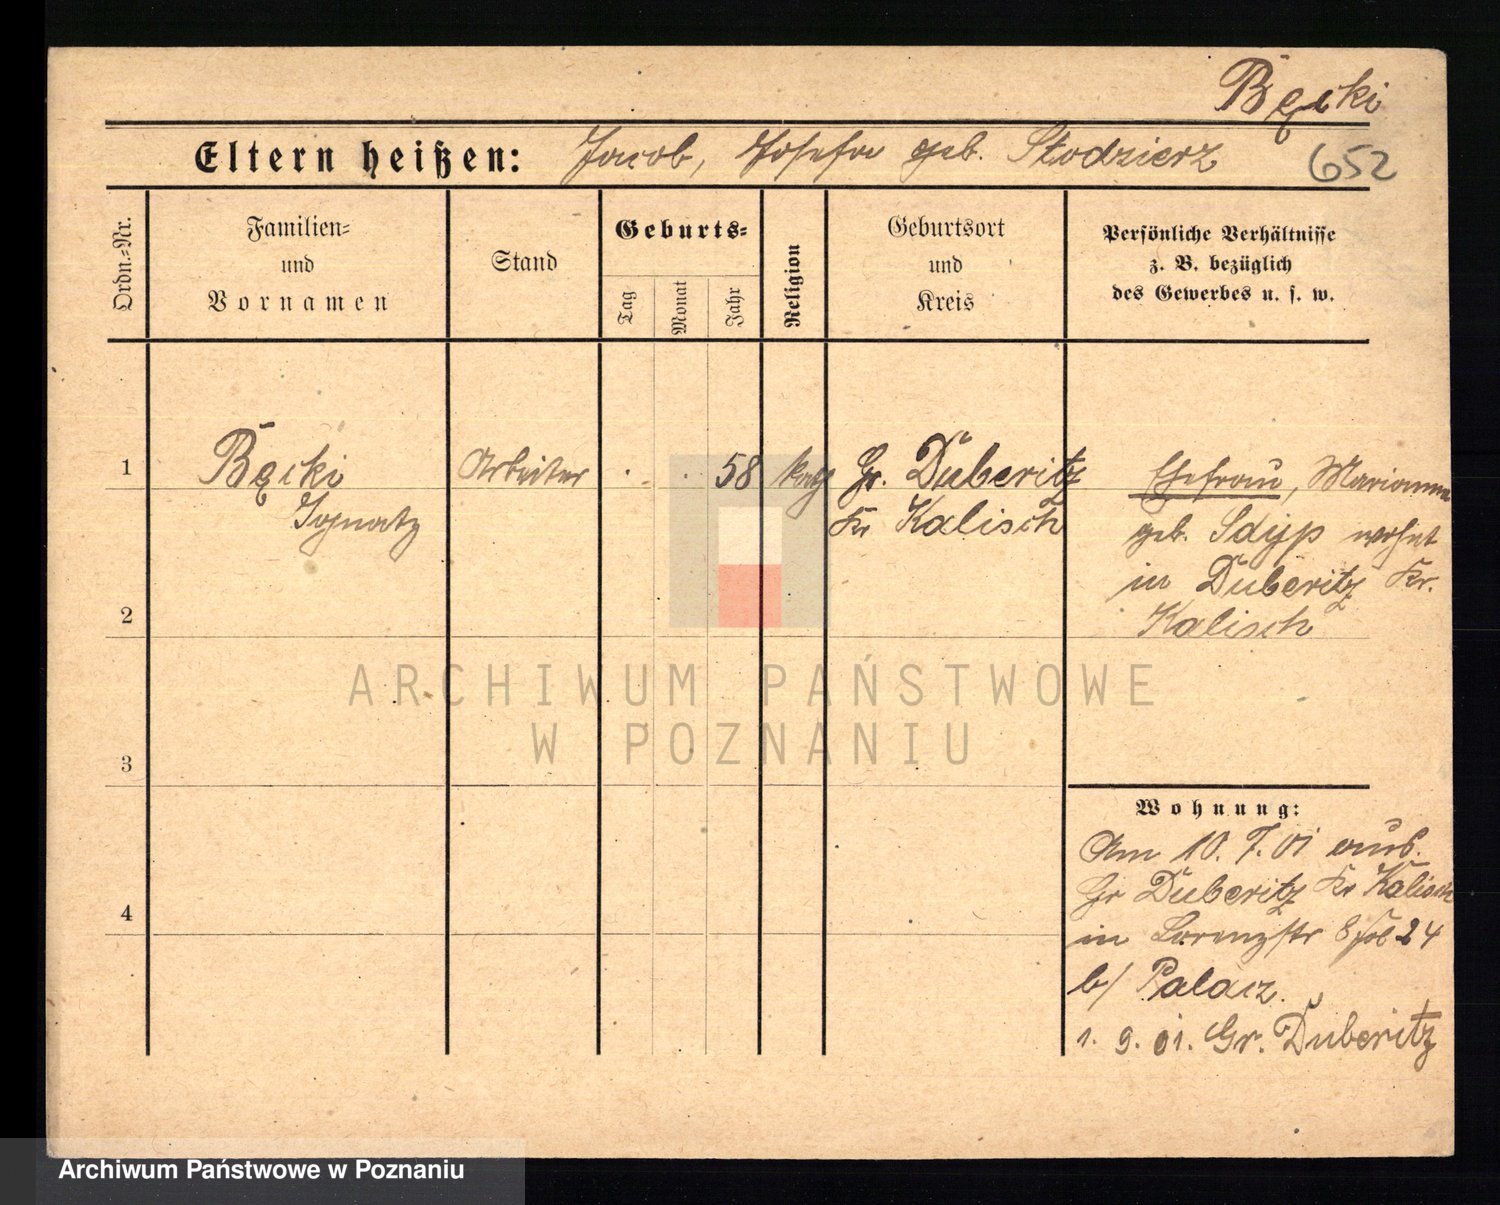 Bęcki
Eltern heißen: Jacob, Josefa geb. Stodzierz
652
Ordn.-Nr.
Familien-
und
Vornamen
Stand
Geburts-
Tag
Monat
Jahr
Religion
Geburtsort
und
Kreis
Persönliche Verhältnisse
z. B. bezüglich
des Gewerbes u. s. w.
1
Bęcki
Ignatz
Arbeiter
58
kath
Gr. Duberitz
Kr Kalisch
Ehefrau, Marianna
geb. wohnt
in Duberitz Kr.
Kalisch
2
3
4
Wohnung:
Am 10. 7. 01 aus
Gr Duberitz Kr Kalisch
in Lorenzstr 8 24
b/ Palacz.
1. 9. 01. Gr. Duberitz
ARCHIWUM PAŃSTWOWE
W POZNANIU
Archiwum Państwowe w Poznaniu